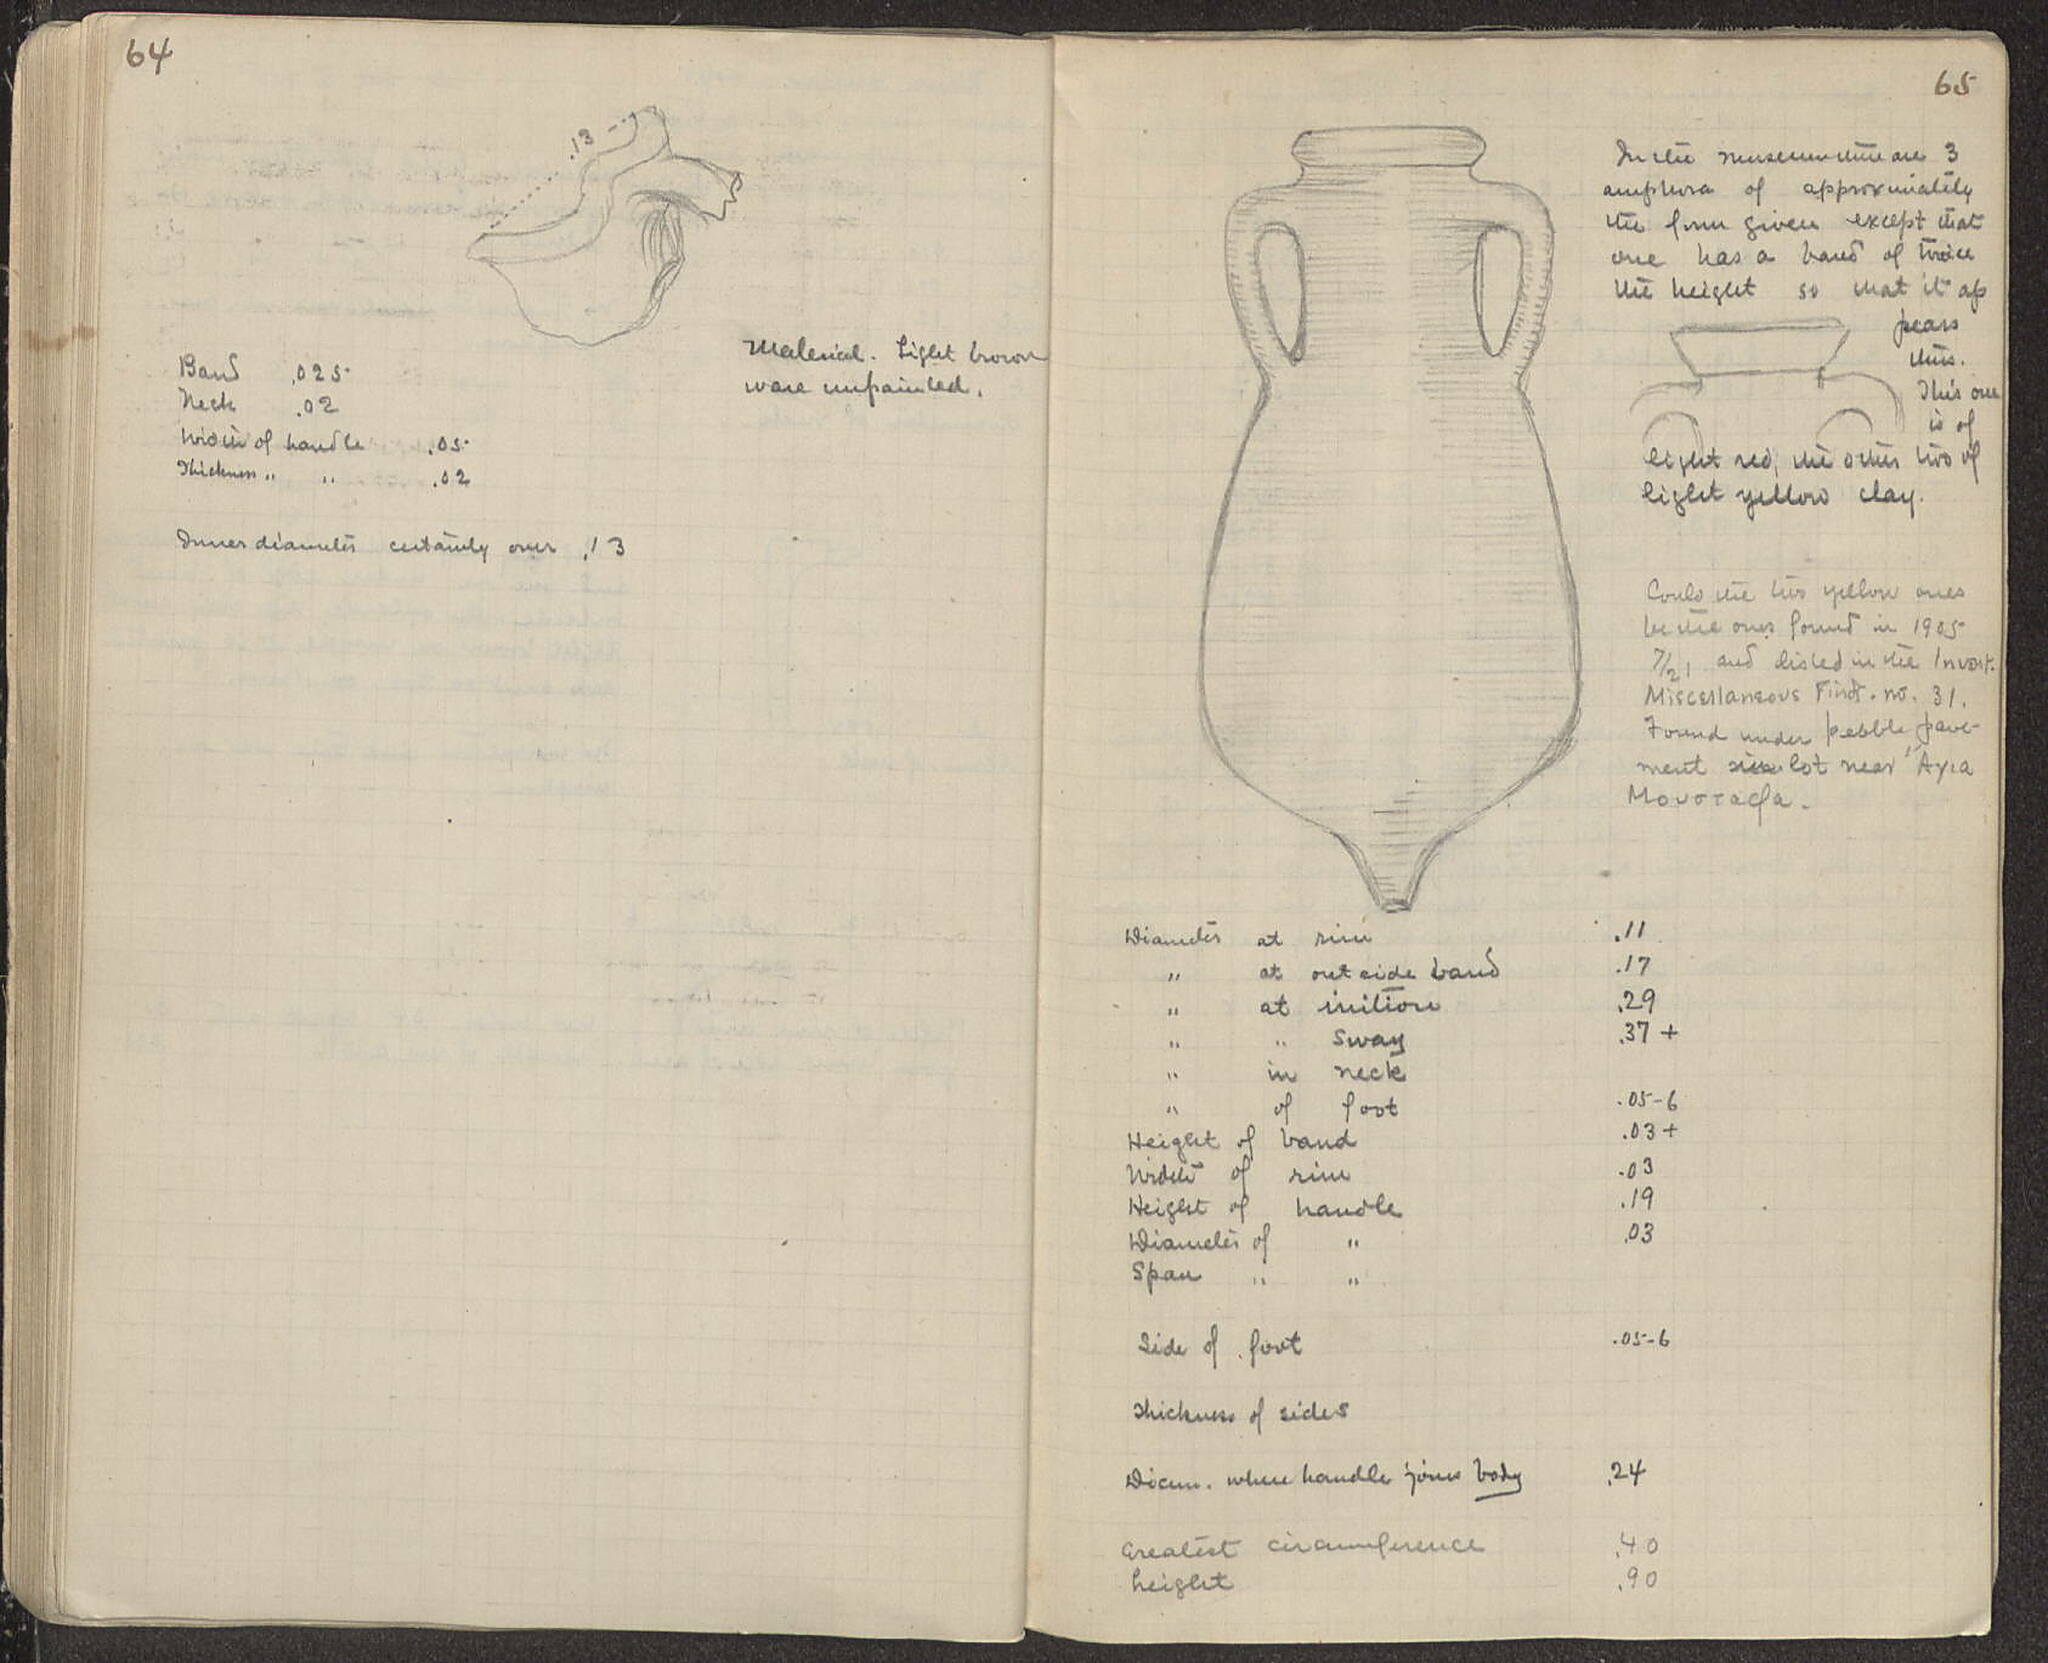 64
.13
Material. Light brown
ware unpainted.
Band .025
Neck .02
Width of handle .05
Thickness " " .02
Inner diameter certainly over .13
65
In the museum there are 3
amphora of approximately
the form given except that
one has a band of twice
the height so that it ap
pears
thus.
This one
is of
light red, the other two of
light yellow clay.
Could the two yellow ones
be the ones found in 1905
7/21 and listed in the Invent.
Miscellaneous Finds. no. 31.
Found under pebble pave-
ment in lot near Ἁγια
Μουσταφα.
Diameter at rim .11
" at outside band .17
" at .29
" " sway .37+
" in neck
" of foot .05-6
Height of band .03+
Width of rim .03
Height of handle .19
Diameter of " .03
Span " "
Side of foot .05-6
Thickness of sides
Diam. where handle joins body .24
Greatest circumference .40
height .90